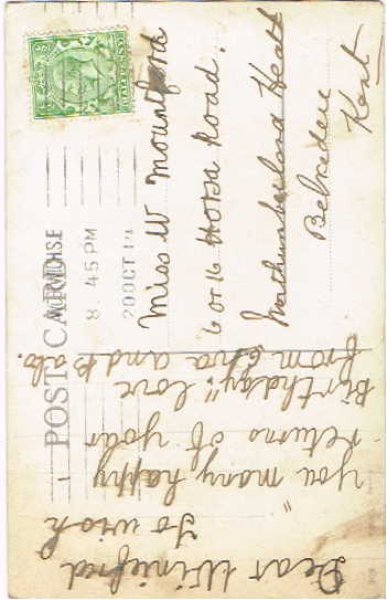 POST CARD
8. 45 PM
20 OCT 14
Dear Winifred
to wish
" you many happy
returns of your
Birthday" love
from Eva and
Miss W Mountford
6 or 16 Horsa Road.
Northumberland Heath
Belvedere
Kent